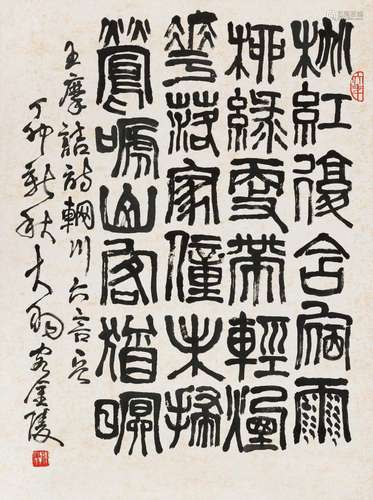 桃紅復含宿雨
柳綠更帶輕煙
華落家僮未掃
鶯嗁山客猶瞑
王摩詰詩輞川六言
丁卯新秋大羽客金陵